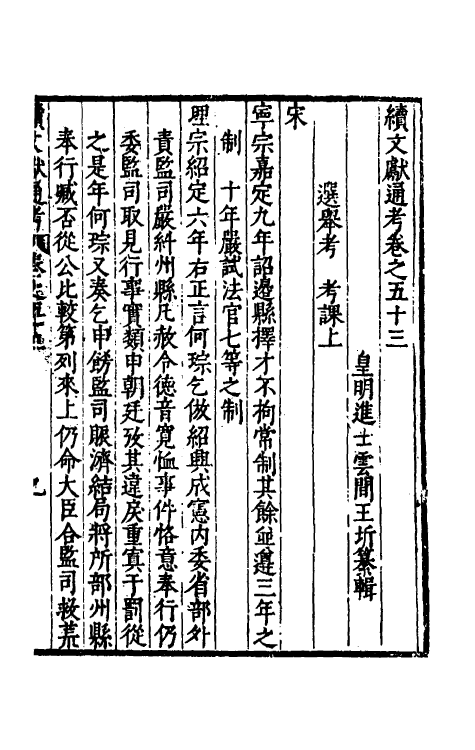 續文獻通考卷之五十三
皇明進士雲間王圻纂輯
選舉考　考課上
宋
寧宗嘉定九年詔邉縣擇才不拘常制其餘並遵三年之
制　十年嚴試法官七等之制
理宗紹定六年右正言何琮乞倣紹興成憲内委省部外
責監司嚴糾州縣凡赦令徳音寛恤事件恪意奉行仍
委監司取見行事實類申朝廷攷其違戾重寘于罰從
之是年何琮又湊乞申飭監司賑濟結局將所部州縣
奉行臧否從公比較第列來上仍命大臣合監司救荒
續文獻通考